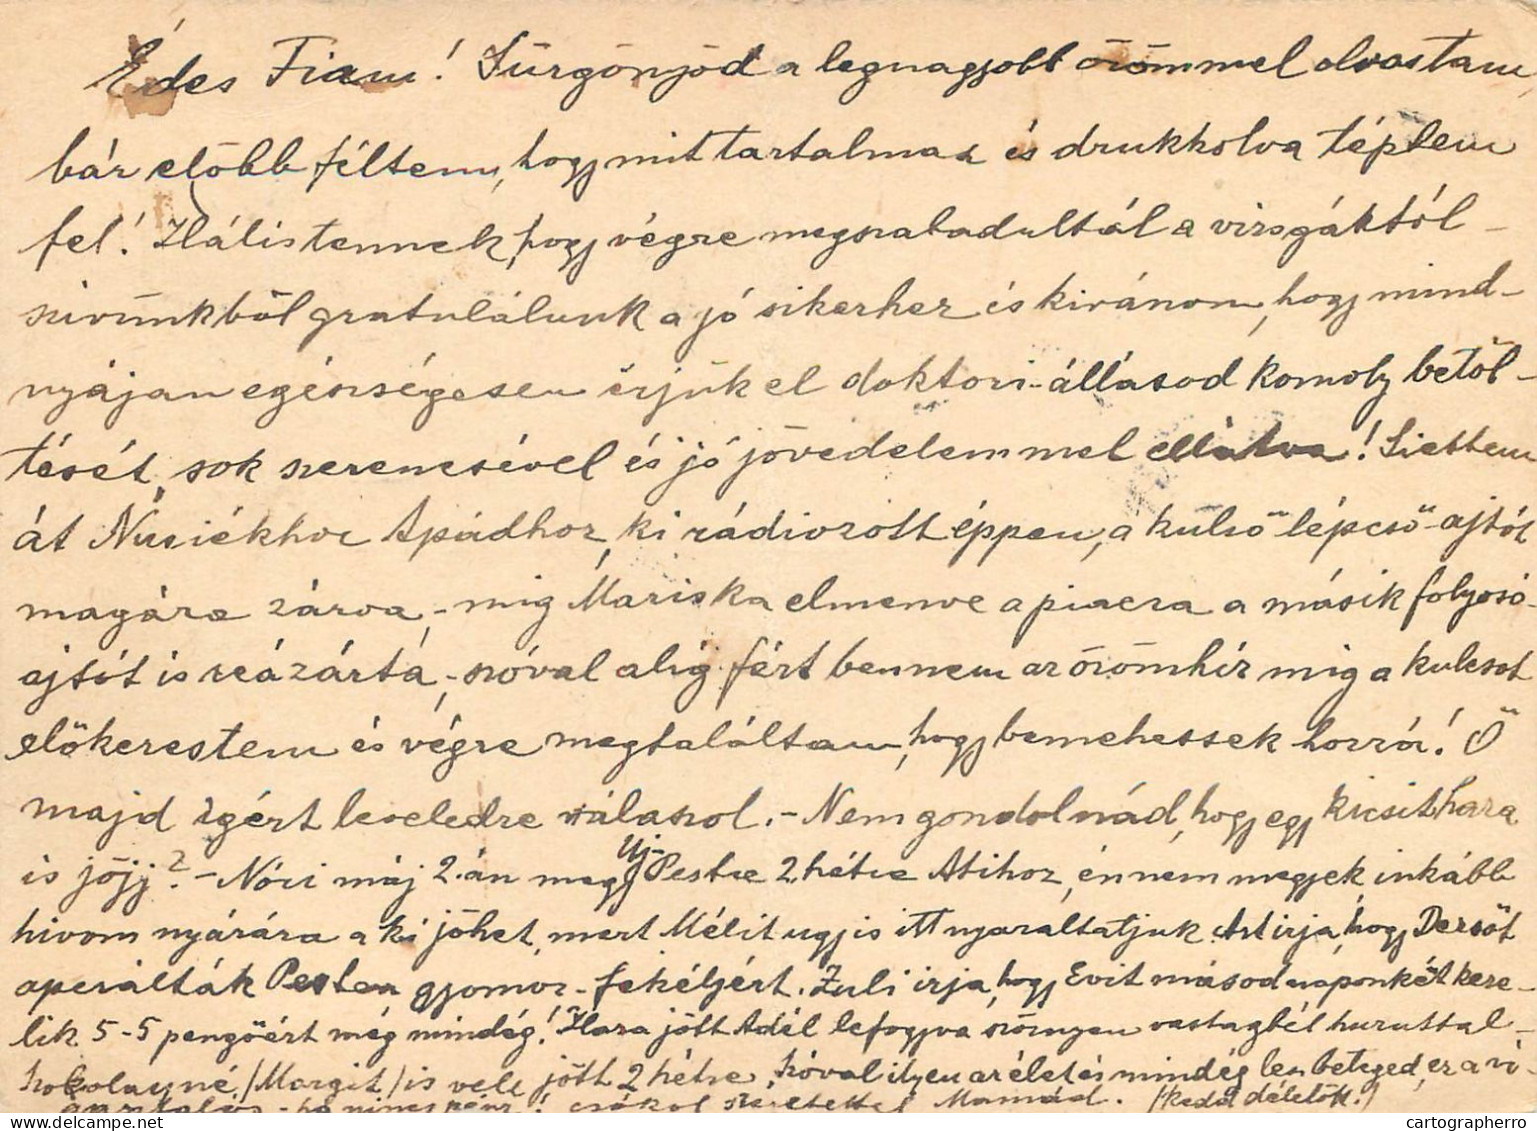 Édes Fiam! Sürgönyöd a legnagyobb örömmel olvastam,
bár előbb féltem, hogy mit tartalmaz és drukkolva téptem
fel! Hálistennek, hogy végre megszabadultál a vizsgáktól -
szivünkből gratulálunk a jó sikerhez és kivánom, hogy mind-
nyájan egészségesen érjük el doktori-állásod komoly betöl-
tését, sok szerencsével és jó jövedelemmel ellátva! Siettem
át Nusiékhoz Apádhoz, ki rádiozott éppen, a külső lépcső-ajtót
magára zárva, - mig Mariska elmenve a piacra a másik folyosó-
ajtót is reázárta, - szóval alig fért bennem az örömhír mig a kulcsot
előkerestem és végre megtaláltam, hogy bemehessek hozzá! Ő
majd igért leveledre válaszol. - Nem gondolnád, hogy egy kicsit haza
is jöjj? - Nóri máj 2.án megy Uj-Pestre 2 hétre Atihoz, én nem megyek inkább
hivom nyárára a ki jöhet, mert Mélit ugyis itt nyaraltatjuk. Azt irja, hogy Dezsőt
operálták Pesten gyomor-fekélyért. Zuli irja, hogy Evit másodnaponként keze-
lik 5-5 pengőért még mindég! Haza jött Adél lefogyva szörnyen vastagbél huruttal -
/Margit/ is vele jött 2 hétre, szóval ilyen az élet és mindég len beteged, ez a vi-
csókol szeretettel Mamád. /kedd délelőtt./
cartographerro